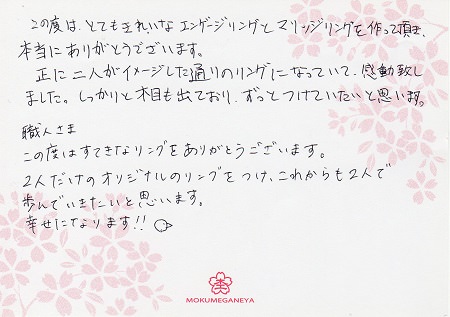 この度は、とてもきれいなエンゲージリングとマリッジリングを作って頂き、
本当にありがとうございます。
正に二人がイメージした通りのリングになっていて、感動致し
ました。しっかりと木目も出ており、ずっとつけていたいと思います。
職人さま
この度はすてきなリングをありがとうございます。
2人だけのオリジナルのリングをつけ、これからも2人で
歩んでいきたいと思います。
幸せになります!!
MOKUMEGANEYA